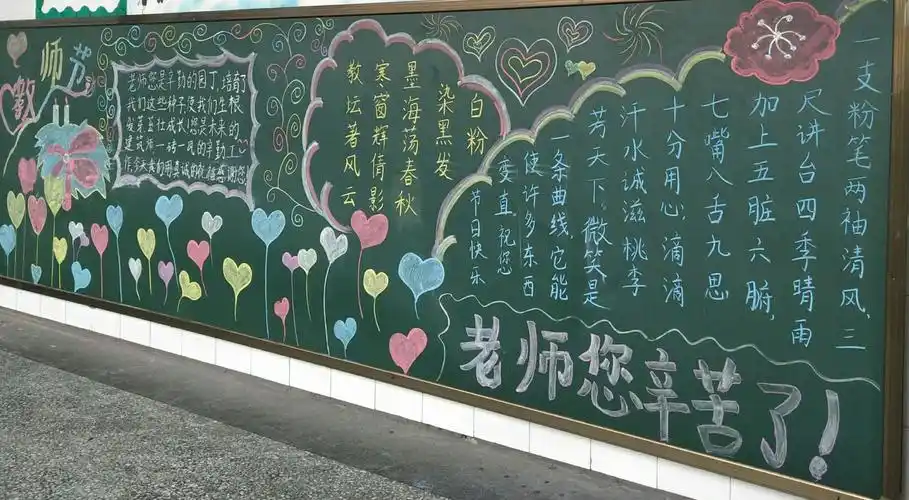 教师节
老师您是辛勤的园丁,培育了
我们这些种子使我们生根
发芽茁壮成长!您是未来的
建筑师一砖一瓦的辛勤工
作今天我们用真诚的祝福感谢您
白粉
染黑发
墨海荡春秋
寒窗辉倩影
教坛著风云
一支粉笔两袖清风、三
尺讲台四季晴雨
加上五脏六腑,
七嘴八舌九思
十分用心,滴滴
汗水诚滋桃李
芳天下。微笑是
一条曲线,它能
使许多东西
变直。祝您
节日快乐
老师您辛苦了!